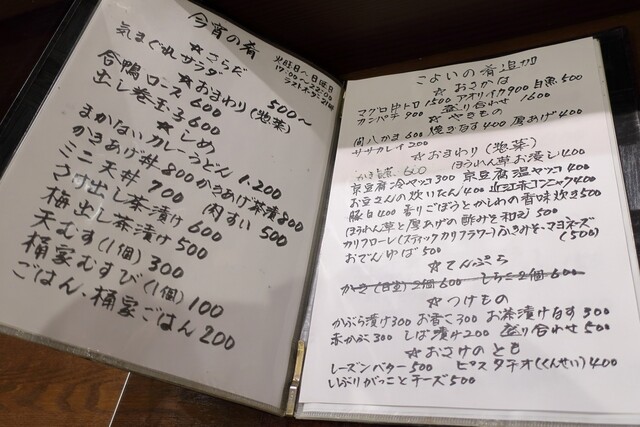 今宵の肴
火曜日〜日曜日
17:00〜22:00
ラストオーダー21:00
☆さらだ
気まぐれサラダ 500〜
☆おまわり(惣菜)
合鴨ロース 600
出し巻玉子 600
☆しめ
まかないカレーうどん 1.200
かきあげ丼 800 かきあげ茶漬 800
ミニ天丼 700 肉すい 500
さけ出し茶漬け 600
梅出し茶漬け 500
天むす(1個) 300
桶家むすび(1個) 100
ごはん、桶家ごはん 200
こよいの肴追加
☆おさかな
マグロ中トロ 1500 アオリイカ 900 白魚 500
カンパチ 900 盛り合わせ 1600
☆やきもの
間八かま 600 焼きなす 400 厚あげ 400
ササカレイ 200
☆おまわり(惣菜)
600 ほうれん草お浸し 400
京豆腐冷ヤッコ 300 京豆腐温ヤッコ 400
お豆さんの炊いたん 400 近江赤コンニャク 400
豚白 400 香りごぼうとかしわの香味炊き 500
ほうれん草と厚あげの酢みそ和え 500
カリフローレ(スティックカリフラワー)ふきみそ・マヨネーズ
(500)
おでんゆば 500
☆てんぷら
2個 600 しらこ 2個 600
☆つけもの
かぶら漬け 300 お香こ 300 お茶漬けなす 300
赤かぶ 300 しば漬け 200 盛り合わせ 500
☆おさけのとも
レーズンバター 500 ピスタチオ(くんせい) 400
いぶりがっことチーズ 500